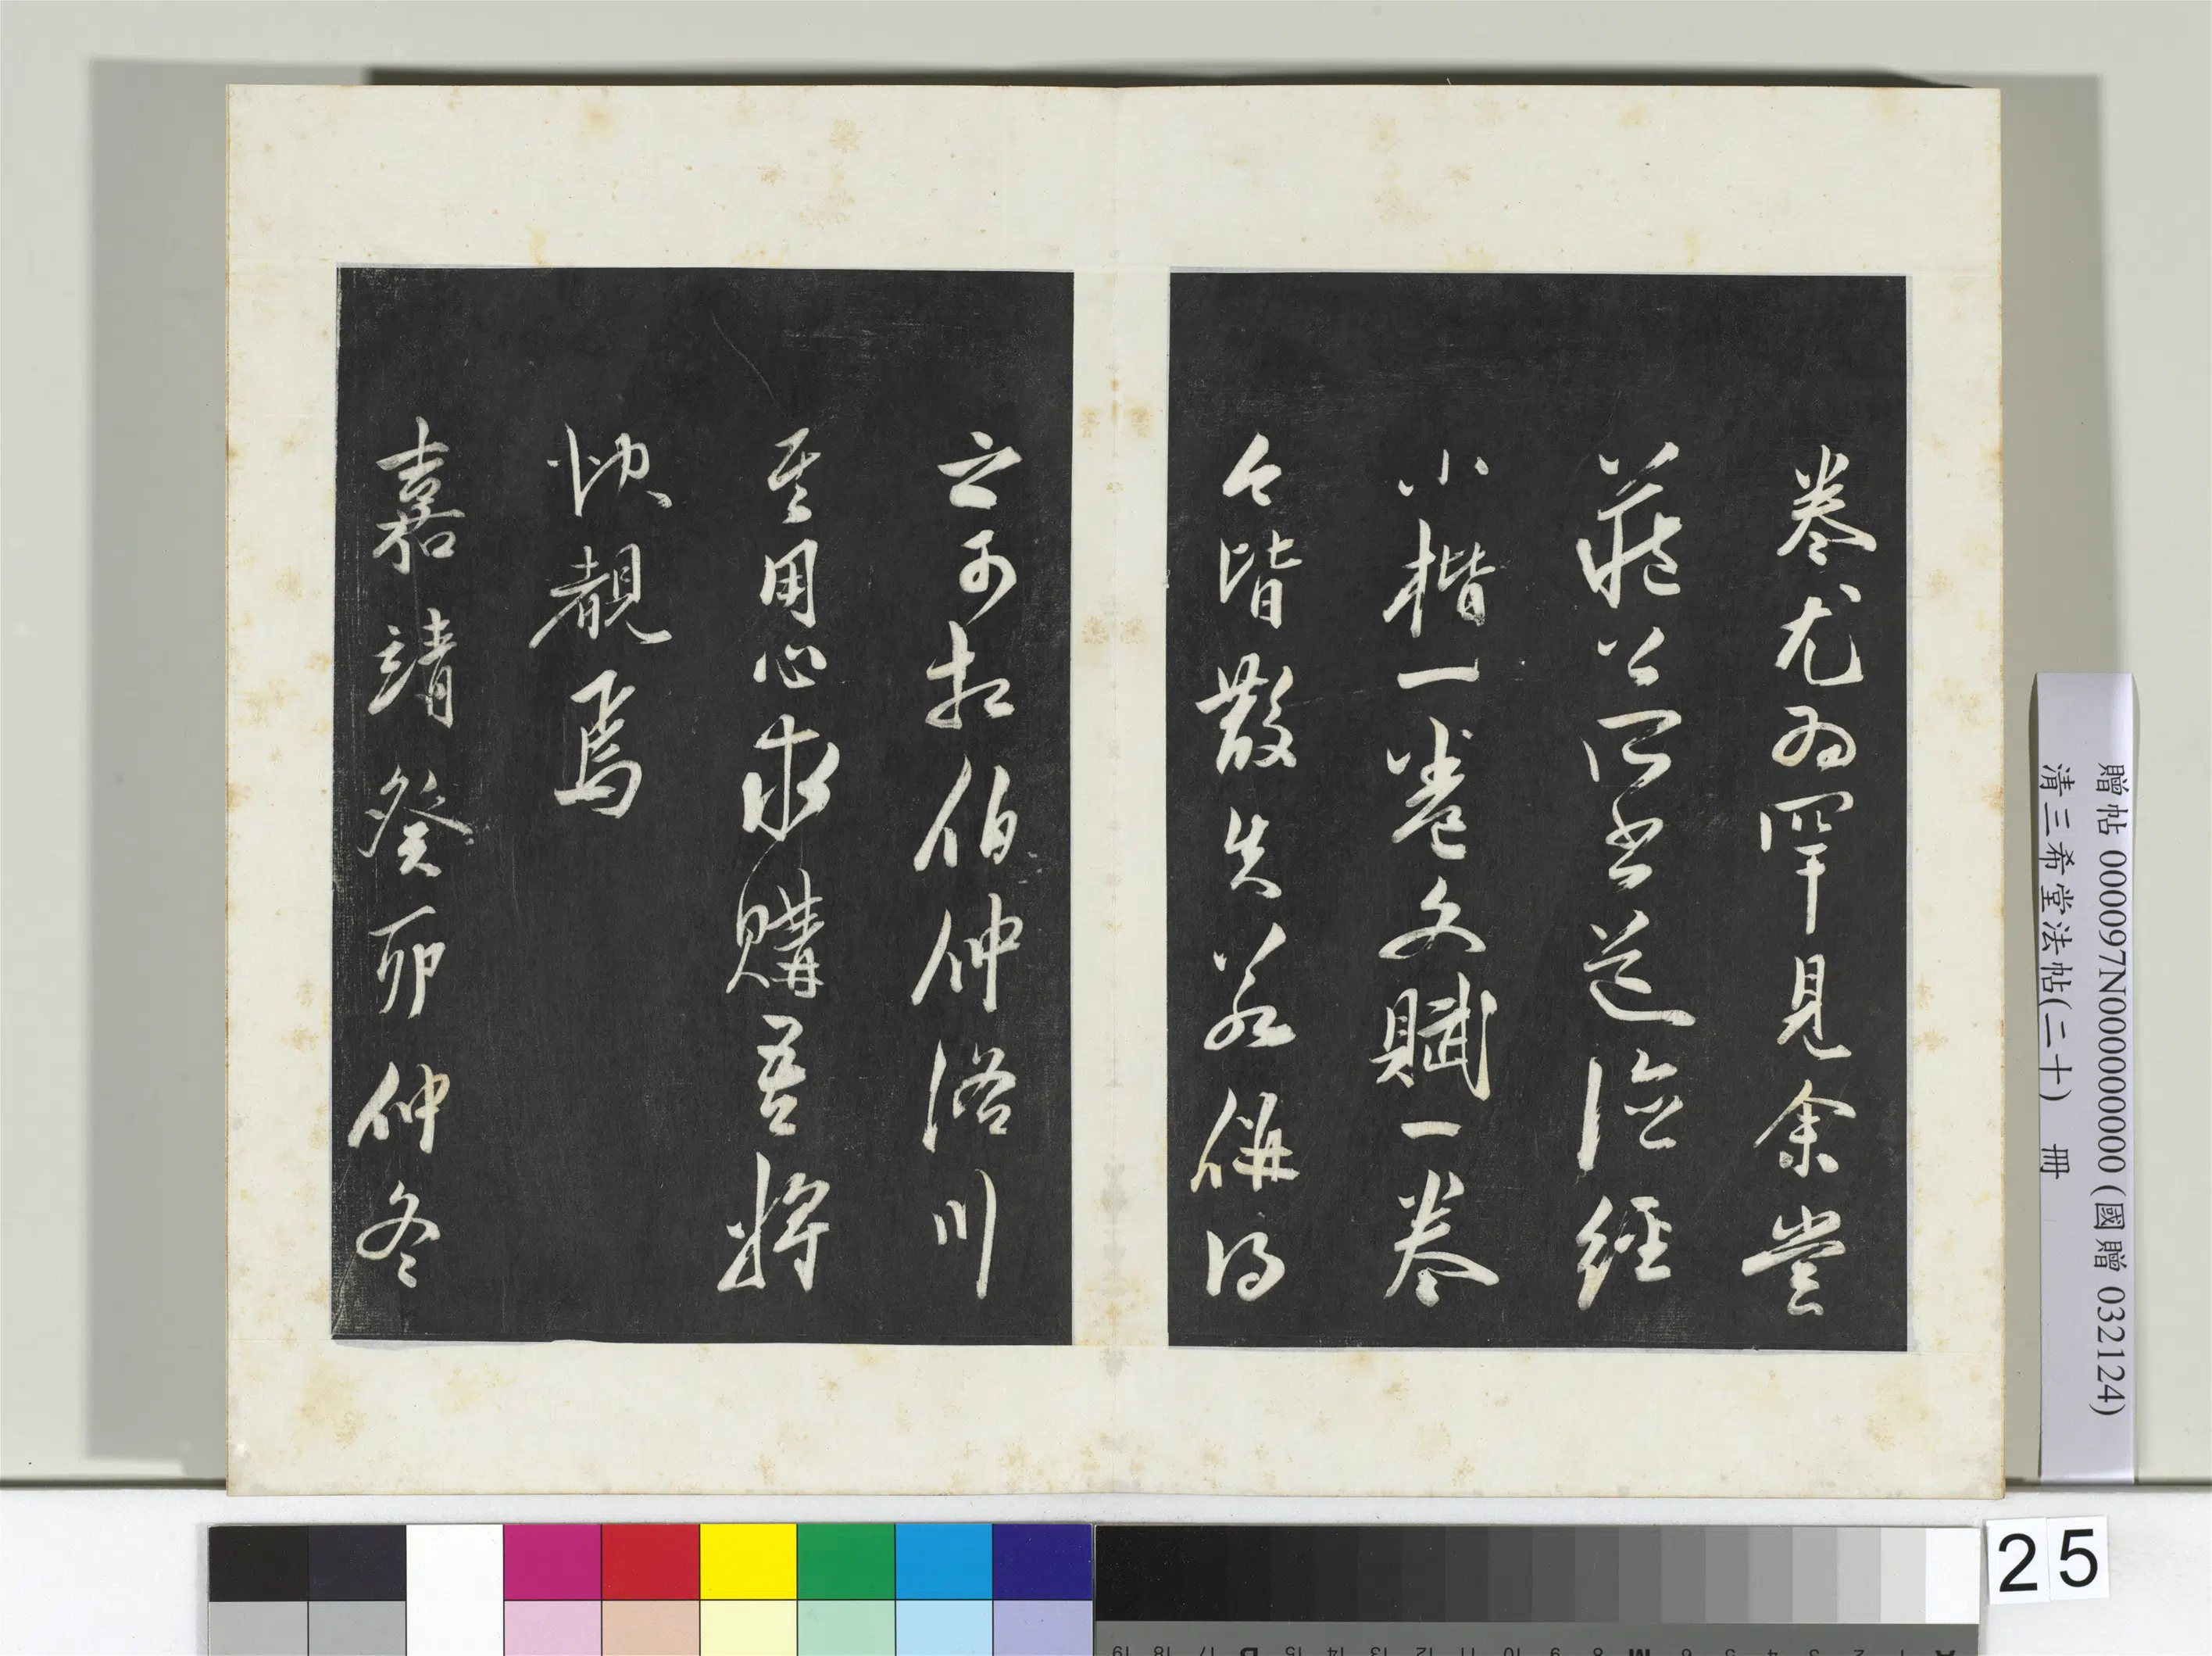 卷尤為罕見余嘗
藏公所書道德經
小楷一卷文賦一卷
今皆散失若併得
之可相伯仲浴川
其用心求購吾將
快覩焉
嘉靖癸卯仲冬
贈帖 000097N000000000 (國贈 032124)
清三希堂法帖(二十) 冊
25